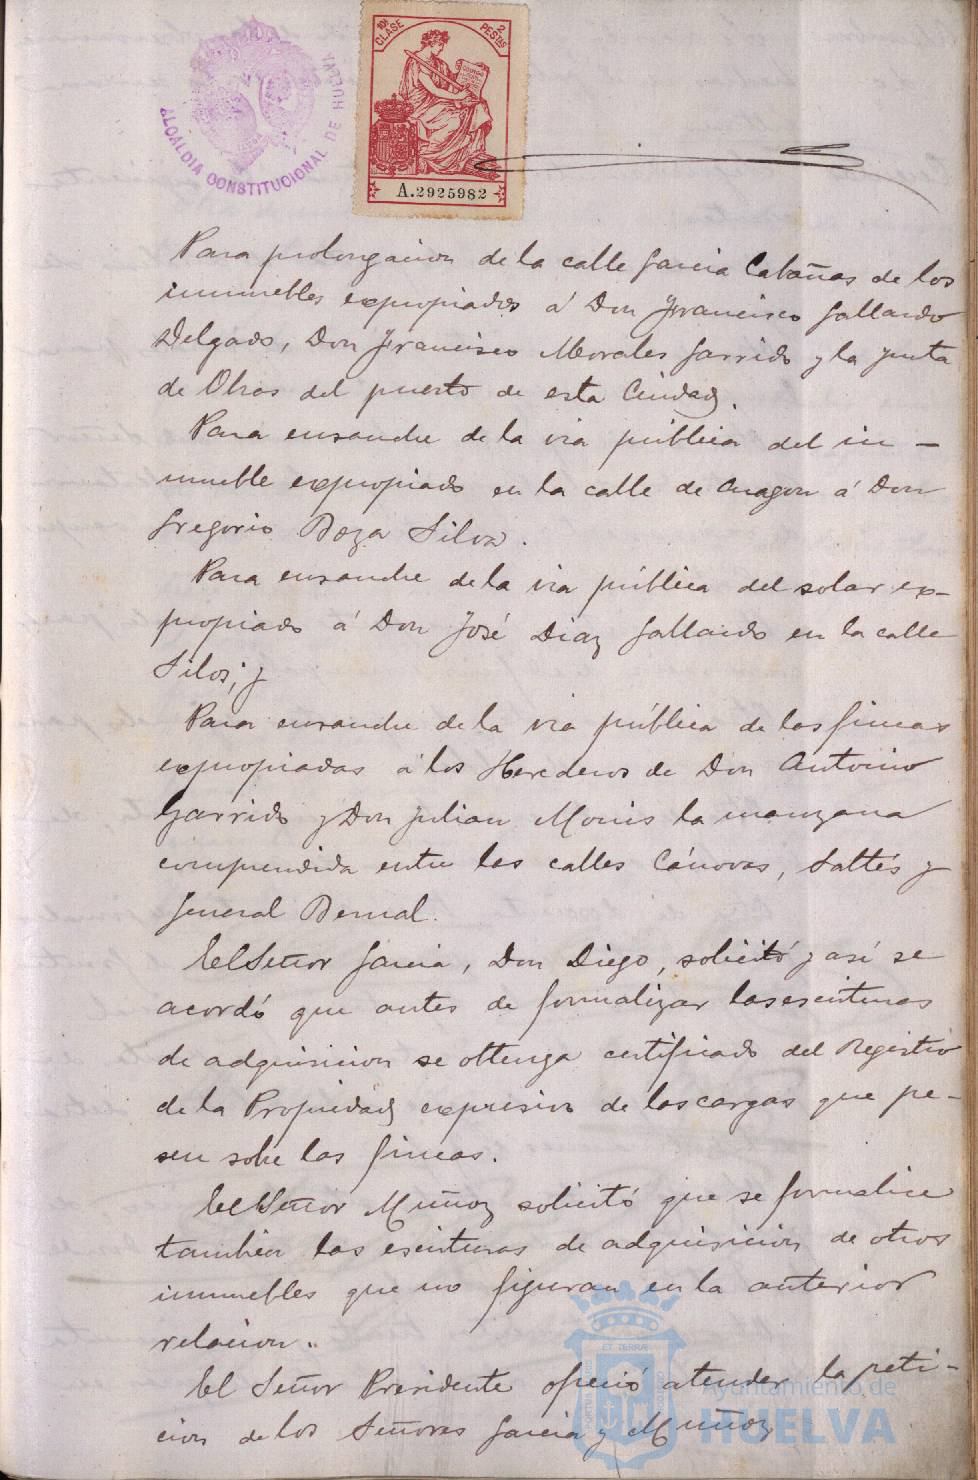 ALCALDIA CONSTITUCIONAL DE HUELVA
10ª CLASE
2 PESTAS
A.2925982
Para prolongacion de la calle Garcia Cabañas de los
inmuebles expropiados á Don Francisco Gallardo
Delgado, Don Francisco Morales Garrido y la Junta
de Obras del puerto de esta Ciudad.
Para ensanche de la via pública del in-
mueble expropiado en la calle de Aragon á Don
Gregorio Doza Silva.
Para ensanche de la via pública del solar ex-
propiado á Don José Diaz Gallardo en la calle
Silos; y
Para ensanche de la via pública de las fincas
expropiadas á los Herederos de Don Antonio
Garrido y Don Julian Monis la manzana
comprendida entre las calles Cánovas, Saltés y
General Bernal.
El Señor Garcia, Don Diego, solicitó y así se
acordó que antes de formalizar las escrituras
de adquisicion se obtenga certificado del Registro
de la Propiedad expresivo de las cargas que pe-
sen sobre las fincas.
El Señor Muñoz solicitó que se formalice
tambien las escrituras de adquisicion de otros
inmuebles que no figuran en la anterior
relacion.
El Señor Presidente ofreció atender la peti-
cion de los Señores Garcia y Muñoz
Ayuntamiento de
HUELVA